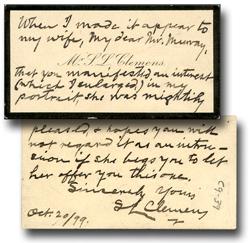 When I made it appear to
my wife, my dear Mr. Murray,
Mr. S. L. Clemens
that you manifested an interest
(which I enlarged,) in my
portrait she was mightily
pleased, & hopes you will
not regard it as an intru-
sion if she begs you to let
her offer you this one.
Sincerely Yours
S L Clemens
Oct. 20/99.